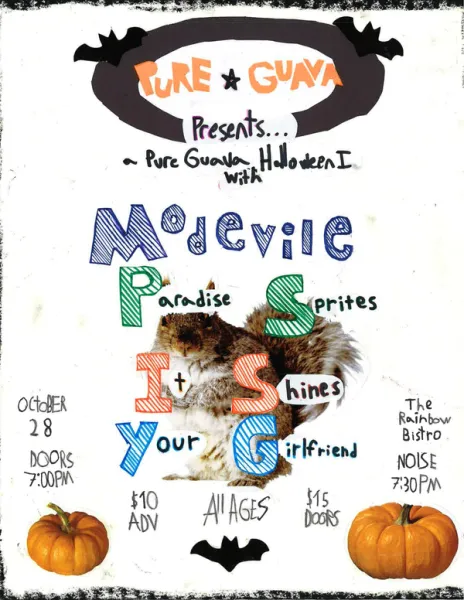 PURE ★ GUAVA
Presents...
a Pure Guava Halloween I
with
Modevile
Paradise Sprites
It Shines
Your Girlfriend
OCTOBER
28
DOORS
7:00PM
The
Rainbow
Bistro
NOISE
7:30PM
$10
ADV
All AGES
$15
DOORS